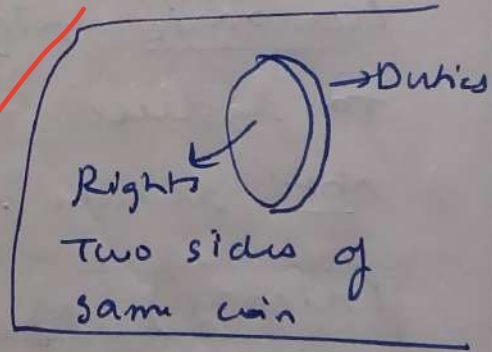 →Duties
Rights
Two sides of
same coin